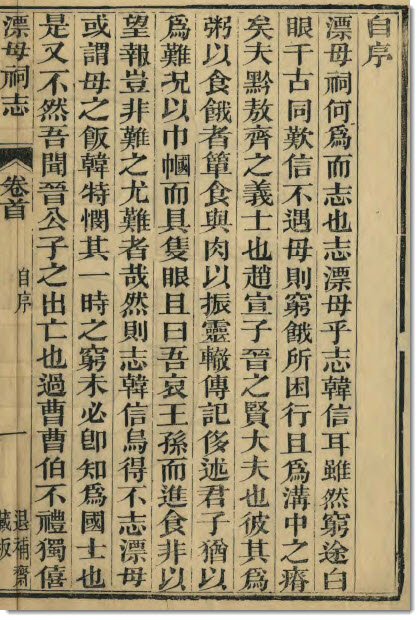 自序
漂母祠何爲而志也志漂母乎志韓信耳雖然窮途白
眼千古同歎信不遇母則窮餓所困行且爲溝中之瘠
矣夫黔敖齊之義士也趙宣子晉之賢大夫也彼其爲
粥以食餓者簞食與肉以振靈輒傳記侈述君子猶以
爲難况以巾幗而具隻眼且曰吾哀王孫而進食非以
望報豈非難之尤難者哉然則志韓信烏得不志漂母
或謂母之飯韓特憫其一時之窮未必卽知爲國士也
是又不然吾聞晉公子之出亡也過曹曹伯不禮獨僖
漂母祠志
卷首
自序
一
退補齋
藏板